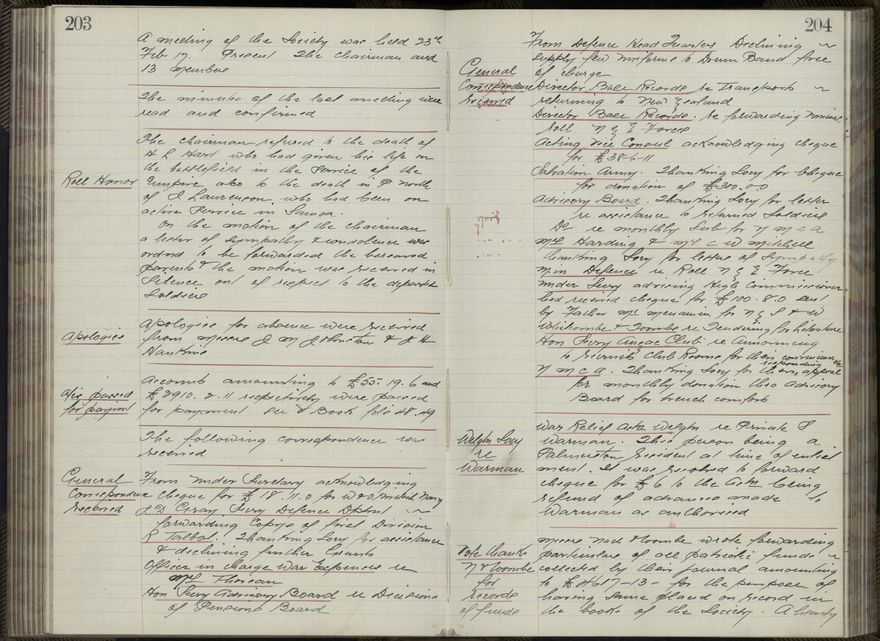 203
A meeting of the Society was held 23rd
Feb 17. Present The Chairman and
13 members
The minutes of the last meeting were
read and confirmed
Roll Honor
The chairman referred to the death of
H L Hart who had given his life on
the battlefield in the service of the
Empire also to the death in P North
of J Laurenson who had been on
active service in Samoa.
On the motion of the Chairman
a letter of sympathy & condolence was
ordered to be forwarded the bereaved
parents & the motion was received in
silence out of respect to the departed
soldiers
Apologies
Apologies for absence were received
from Messrs J M Johnston & J H
Hankins
A/cs passed
for payment
Accounts amounting to £55.19.6 and
£2910.2.11 respectively were passed
for payment see Book folio 48.49
The following correspondence was
received
General
Correspondence
Received
From Under Secretary acknowledging
cheque for £18.11.0 for
J D Gray Secy Defence Dptmt
forwarding Copys of first Division
R Talbot. Thanking Socy for assistance
& declining further Grants
Officer in charge War Expenses re
Thomson
Hon Secy Advisory Board re Decisions
of Pensions Board
204
From Defence Head Quarters Declining
supply few uniforms to Drum Band free
of charge
General
Correspondence
Received
Director Base Records re Transports
returning to New Zealand
Director Base Records. re forwarding nominal
roll N Z E Forces
Acting Vice Consul acknowledging cheque
for £38-6-11
Salvation Army. Thanking Socy for cheque
for donation of £300.0.0
Advisory Board. Thanking Socy for letter
re assistance to returned soldiers
Do re monthly Sub for Y M C A
Mrs Harding & Mrs C W Mitchell
thanking Socy for letter of sympathy
Min Defence re Roll N Z E Force
Under Secy advising High Commissioner
had received cheque for £100.8.0 sent
by Father
Whitcombe & Tombs re Tendering for Literature
Hon Secy Anzac Club re
to Club Rooms for their
Y M C A. Thanking Socy for responding their appeal
for monthly donation also Advisory
Board for trench comforts
Welgtn Socy
re
Warman
War Relief Assn Welgtn re Private S
Warman. This person being a
Palmerston resident at time of enlist
ment. It was resolved to forward
cheque for £6 to the Assn being
refund of advances made to
Warman as authorised
Vote thanks
N & Coombe
for
records
of funds
Messrs Nash & Coombe wrote forwarding
particulars of all patriotic funds
collected by their journal amounting
to for the purpose of
having same placed on record in
the books of the Society. A hearty